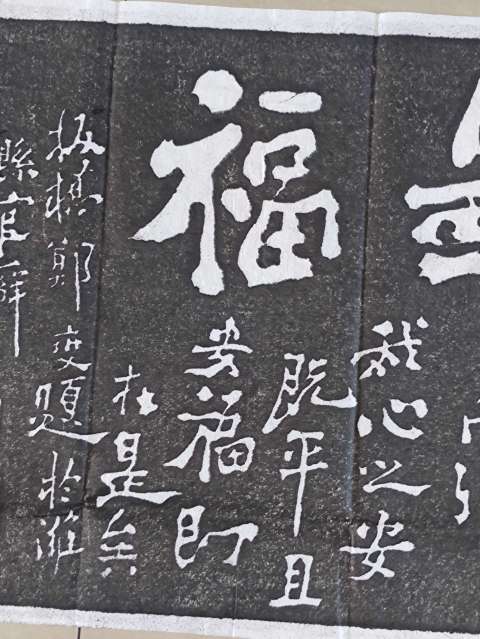 福
我心之安
既平且
安福即
在是矣
板橋鄭燮題於濰
縣官廨